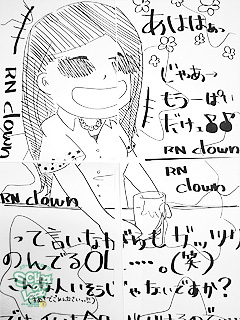 あははぁっ
じゃあー
もう一ぱい
だけぇ
RN clown
RN clown
RN clown
RN clown
って言いながらもガッツリ
のんでるOL……。(笑)
いそうじゃないですか?